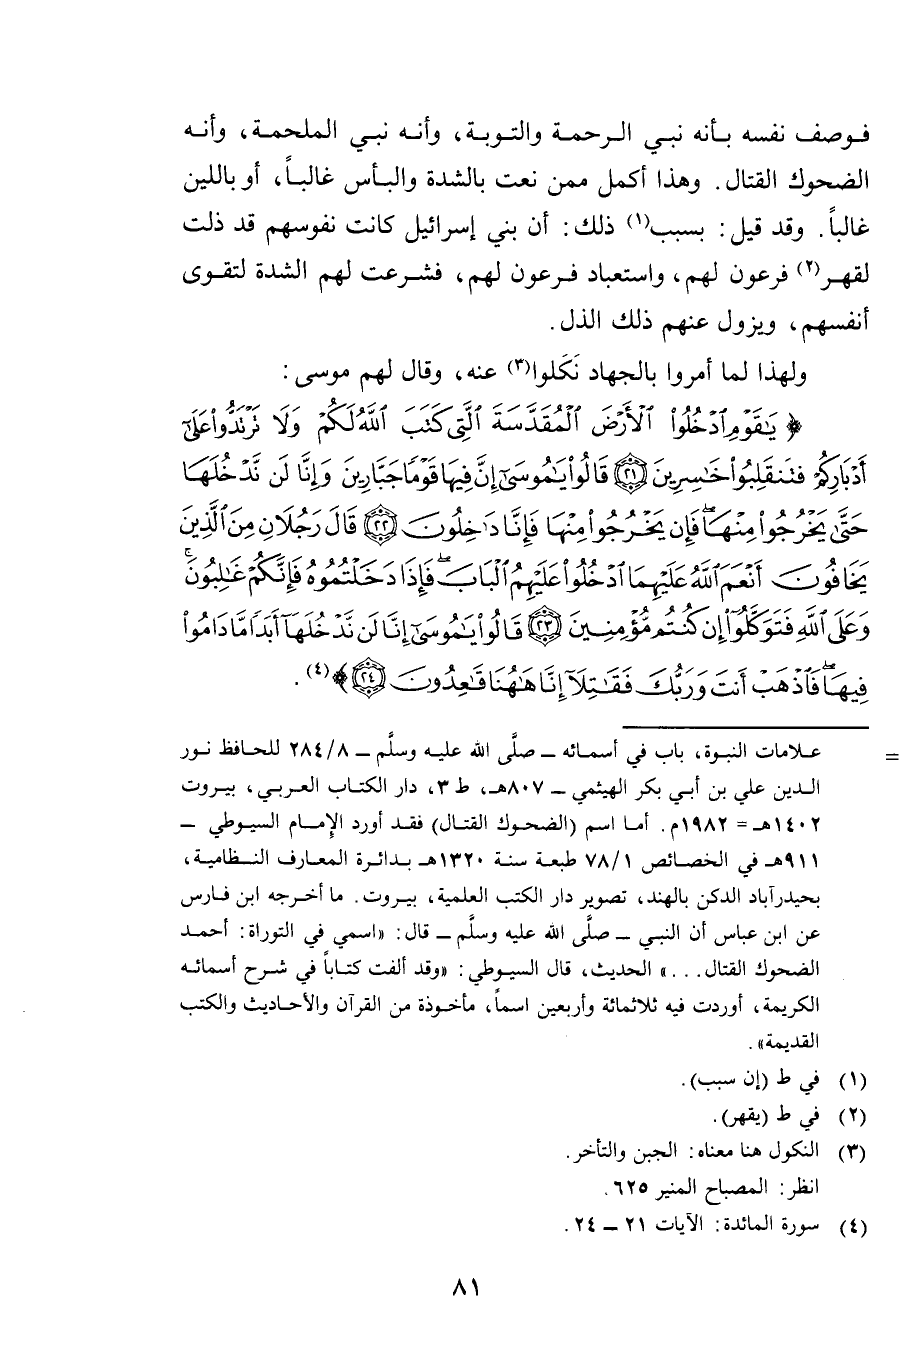 فـوصف نفسه بـأنه نبـي الـرحمـة والتـوبـة، وأنـه نبـي الملحمـة، وأنـه
الضحوك القتال. وهذا أكمل ممن نعت بالشدة والبأس غالبـاً، أو باللين
غالباً. وقد قيل: بسبب(١) ذلك: أن بني إسرائيل كانت نفوسهم قد ذلت
لقهـر(٢) فرعون لهم، واستعباد فـرعون لهم، فشـرعت لهم الشدة لتقـوى
أنفسهم، ويزول عنهم ذلك الذل.
ولهذا لما أمروا بالجهاد نَكَلوا(٣) عنه، وقال لهم موسى:
﴿ يَٰقَوْمِ ٱدْخُلُوا۟ ٱلْأَرْضَ ٱلْمُقَدَّسَةَ ٱلَّتِى كَتَبَ ٱللَّهُ لَكُمْ وَلَا تَرْتَدُّوا۟ عَلَىٰٓ
أَدْبَارِكُمْ فَتَنقَلِبُوا۟ خَٰسِرِينَ ٢١ قَالُوا۟ يَٰمُوسَىٰٓ إِنَّ فِيهَا قَوْمًا جَبَّارِينَ وَإِنَّا لَن نَّدْخُلَهَا
حَتَّىٰ يَخْرُجُوا۟ مِنْهَا ۖ فَإِن يَخْرُجُوا۟ مِنْهَا فَإِنَّا دَٰخِلُونَ ٢٢ قَالَ رَجُلَانِ مِنَ ٱلَّذِينَ
يَخَافُونَ أَنْعَمَ ٱللَّهُ عَلَيْهِمَا ٱدْخُلُوا۟ عَلَيْهِمُ ٱلْبَابَ ۖ فَإِذَا دَخَلْتُمُوهُ فَإِنَّكُمْ غَٰلِبُونَ ۚ
وَعَلَى ٱللَّهِ فَتَوَكَّلُوٓا۟ إِن كُنتُم مُّؤْمِنِينَ ٢٣ قَالُوا۟ يَٰمُوسَىٰٓ إِنَّا لَن نَّدْخُلَهَآ أَبَدًا مَّا دَامُوا۟
فِيهَا ۖ فَٱذْهَبْ أَنتَ وَرَبُّكَ فَقَٰتِلَآ إِنَّا هَٰهُنَا قَٰعِدُونَ ٢٤﴾(٤).
= عـلامات النبـوة، باب في أسمـائه ــ صلَّى الله عليـه وسلَّم ــ ٢٨٤/٨ للحافظ نـور
الـدين علي بن أبـي بكر الهيثمي ــ ٨٠٧هـ، ط ٣، دار الكتـاب العـربـي، بيـروت
١٤٠٢هـ = ١٩٨٢م. أمـا اسم (الضحـوك القتـال) فقـد أورد الإمـام السيـوطي ــ
٩١١هـ في الخصائص ٧٨/١ طبعـة سنـة ١٣٢٠هـ بـدائـرة المعـارف النـظاميـة،
بحيدرآباد الدكن بالهند، تصوير دار الكتب العلمية، بيروت. ما أخـرجه ابن فـارس
عن ابن عباس أن النبـي ــ صلَّى الله عليه وسلَّم ــ قال: «اسمي في التوراة: أحمـد
الضحوك القتال...» الحديث، قال السيـوطي: «وقد ألفت كتـاباً في شـرح أسمائـه
الكريمة، أوردت فيه ثلاثمائة وأربعين اسمـاً، مأخـوذة من القرآن والأحـاديث والكتب
القديمة».
(١) في ط (إن سبب).
(٢) في ط (يقهر).
(٣) النكول هنا معناه: الجبن والتأخر.
انظر: المصباح المنير ٦٢٥.
(٤) سورة المائدة: الآيات ٢١ ــ ٢٤.
٨١